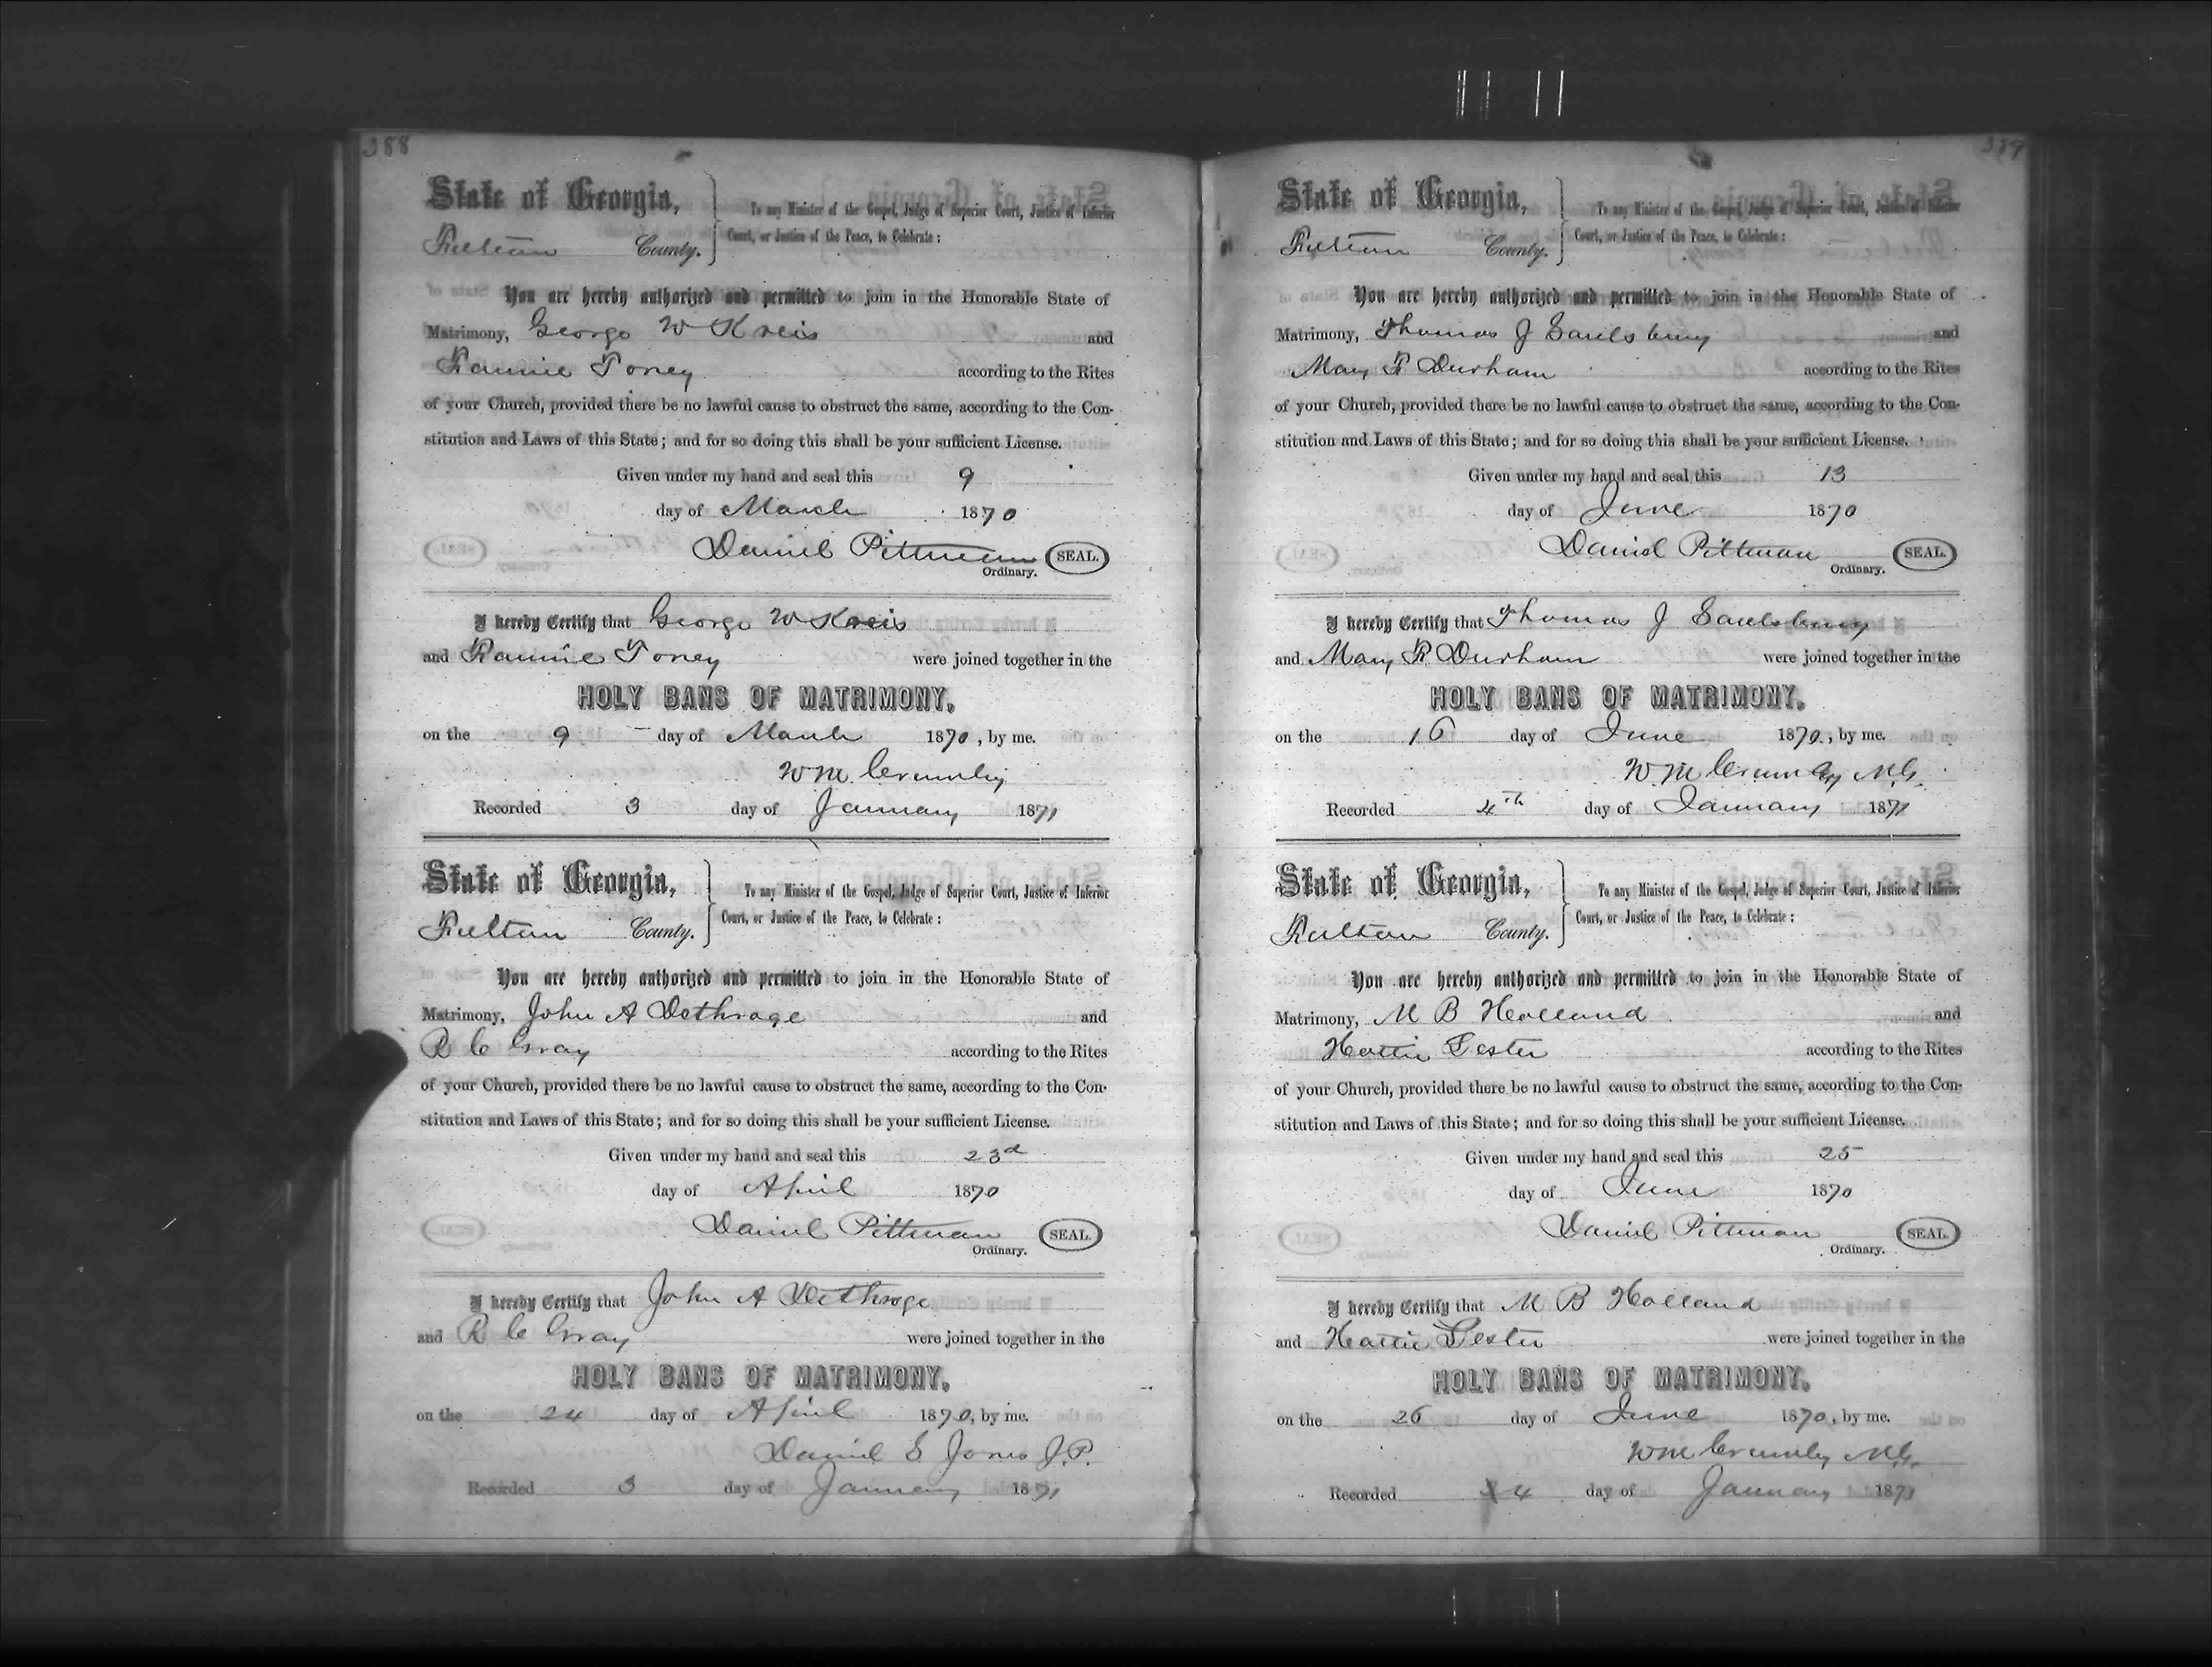 388
State of Georgia,
Fulton County.
To any Minister of the Gospel, Judge of Superior Court, Justice of Inferior
Court, or Justice of the Peace, to Celebrate:
You are hereby authorized and permitted to join in the Honorable State of
Matrimony, George W Kreis and
Fannie Toney according to the Rites
of your Church, provided there be no lawful cause to obstruct the same, according to the Con-
stitution and Laws of this State; and for so doing this shall be your sufficient License.
Given under my hand and seal this 9
day of March 1870
Daniel Pittman SEAL.
Ordinary.
I hereby Certify that George W Kreis
and Fannie Toney were joined together in the
HOLY BANS OF MATRIMONY,
on the 9 day of March 1870, by me.
W M Crumley
Recorded 3 day of January 1871
State of Georgia,
Fulton County.
To any Minister of the Gospel, Judge of Superior Court, Justice of Inferior
Court, or Justice of the Peace, to Celebrate:
You are hereby authorized and permitted to join in the Honorable State of
Matrimony, John A Dethrage and
R C Gray according to the Rites
of your Church, provided there be no lawful cause to obstruct the same, according to the Con-
stitution and Laws of this State; and for so doing this shall be your sufficient License.
Given under my hand and seal this 23d
day of April 1870
Daniel Pittman SEAL.
Ordinary.
I hereby Certify that John A Dethrage
and R C Gray were joined together in the
HOLY BANS OF MATRIMONY,
on the 24 day of April 1870, by me.
Daniel S Jones J.P.
Recorded 3 day of January 1871
389
State of Georgia,
Fulton County.
To any Minister of the Gospel, Judge of Superior Court, Justice of Inferior
Court, or Justice of the Peace, to Celebrate:
You are hereby authorized and permitted to join in the Honorable State of
Matrimony, Thomas J Saulsbury and
Mary F Durham according to the Rites
of your Church, provided there be no lawful cause to obstruct the same, according to the Con-
stitution and Laws of this State; and for so doing this shall be your sufficient License.
Given under my hand and seal this 13
day of June 1870
Daniel Pittman SEAL.
Ordinary.
I hereby Certify that Thomas J Saulsbury
and Mary F Durham were joined together in the
HOLY BANS OF MATRIMONY,
on the 16 day of June 1870, by me.
W. M Crumley M.G.
Recorded 4th day of January 1871
State of Georgia,
Fulton County.
To any Minister of the Gospel, Judge of Superior Court, Justice of Inferior
Court, or Justice of the Peace, to Celebrate:
You are hereby authorized and permitted to join in the Honorable State of
Matrimony, M B Holland and
Hattie Lester according to the Rites
of your Church, provided there be no lawful cause to obstruct the same, according to the Con-
stitution and Laws of this State; and for so doing this shall be your sufficient License.
Given under my hand and seal this 25
day of June 1870
Daniel Pittman SEAL.
Ordinary.
I hereby Certify that M B Holland
and Hattie Lester were joined together in the
HOLY BANS OF MATRIMONY,
on the 26 day of June 1870, by me.
W M Crumley M.G.
Recorded 4 day of January 1871